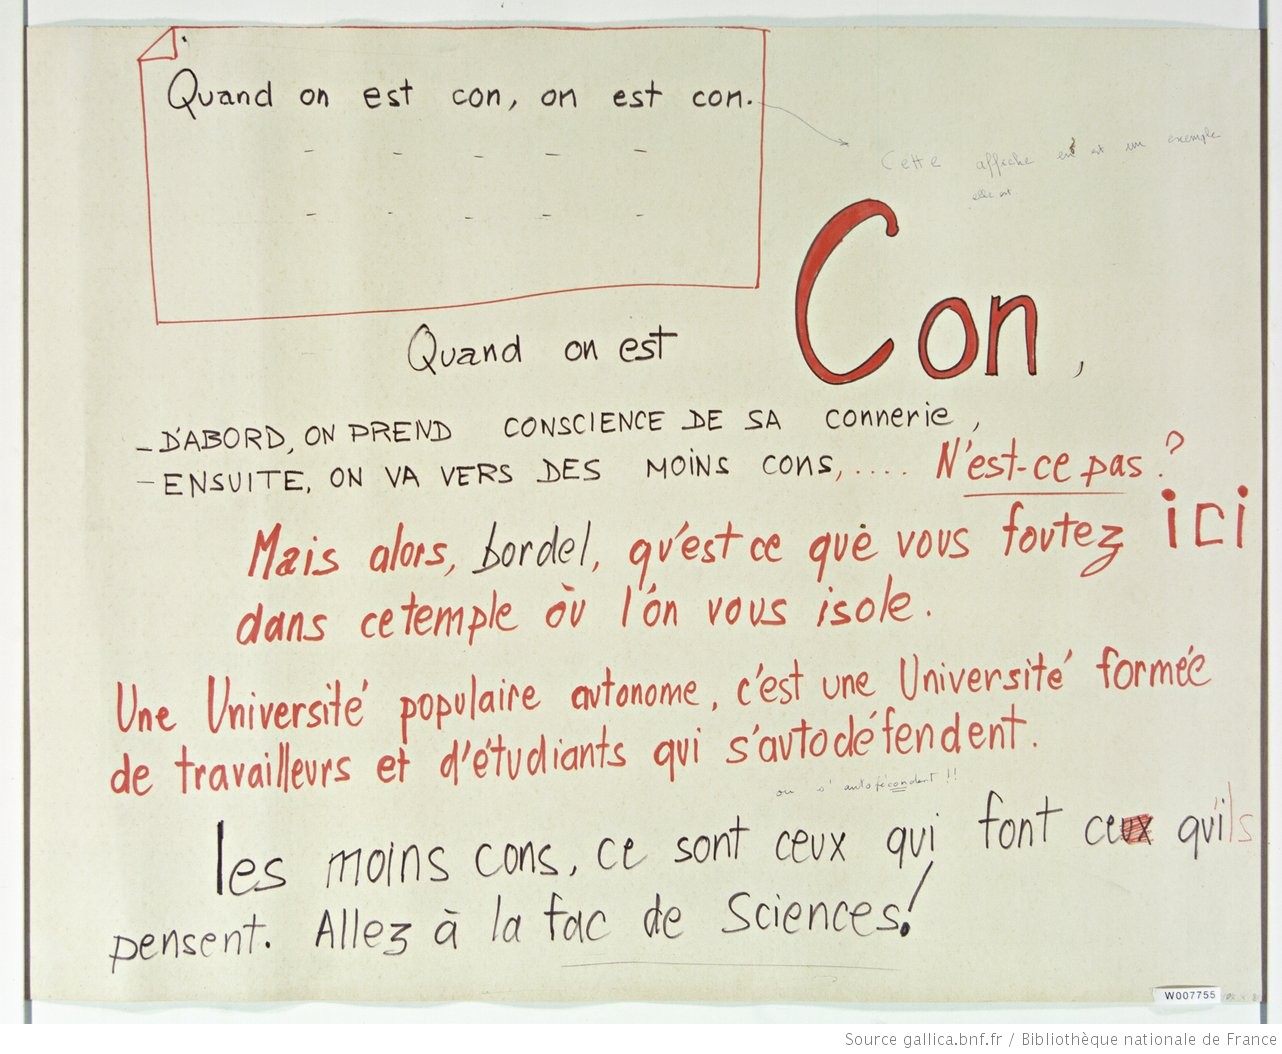 Quand on est con, on est con.
- - - - -
- - - - -
Cette affiche est et un exemple
elle est
Quand on est Con,
- D'ABORD, ON PREND CONSCIENCE DE SA connerie,
- ENSUITE, ON VA VERS DES MOINS CONS,.... N'est-ce pas ?
Mais alors, bordel, qu'est ce que vous foutez ici
dans ce temple où l'on vous isole.
Une Université populaire autonome, c'est une Université formée
de travailleurs et d'étudiants qui s'autodéfendent.
ou s'autofécondent !!
les moins cons, ce sont ceux qui font ce qu'ils
pensent. Allez à la fac de Sciences!
W007755
Source gallica.bnf.fr / Bibliothèque nationale de France